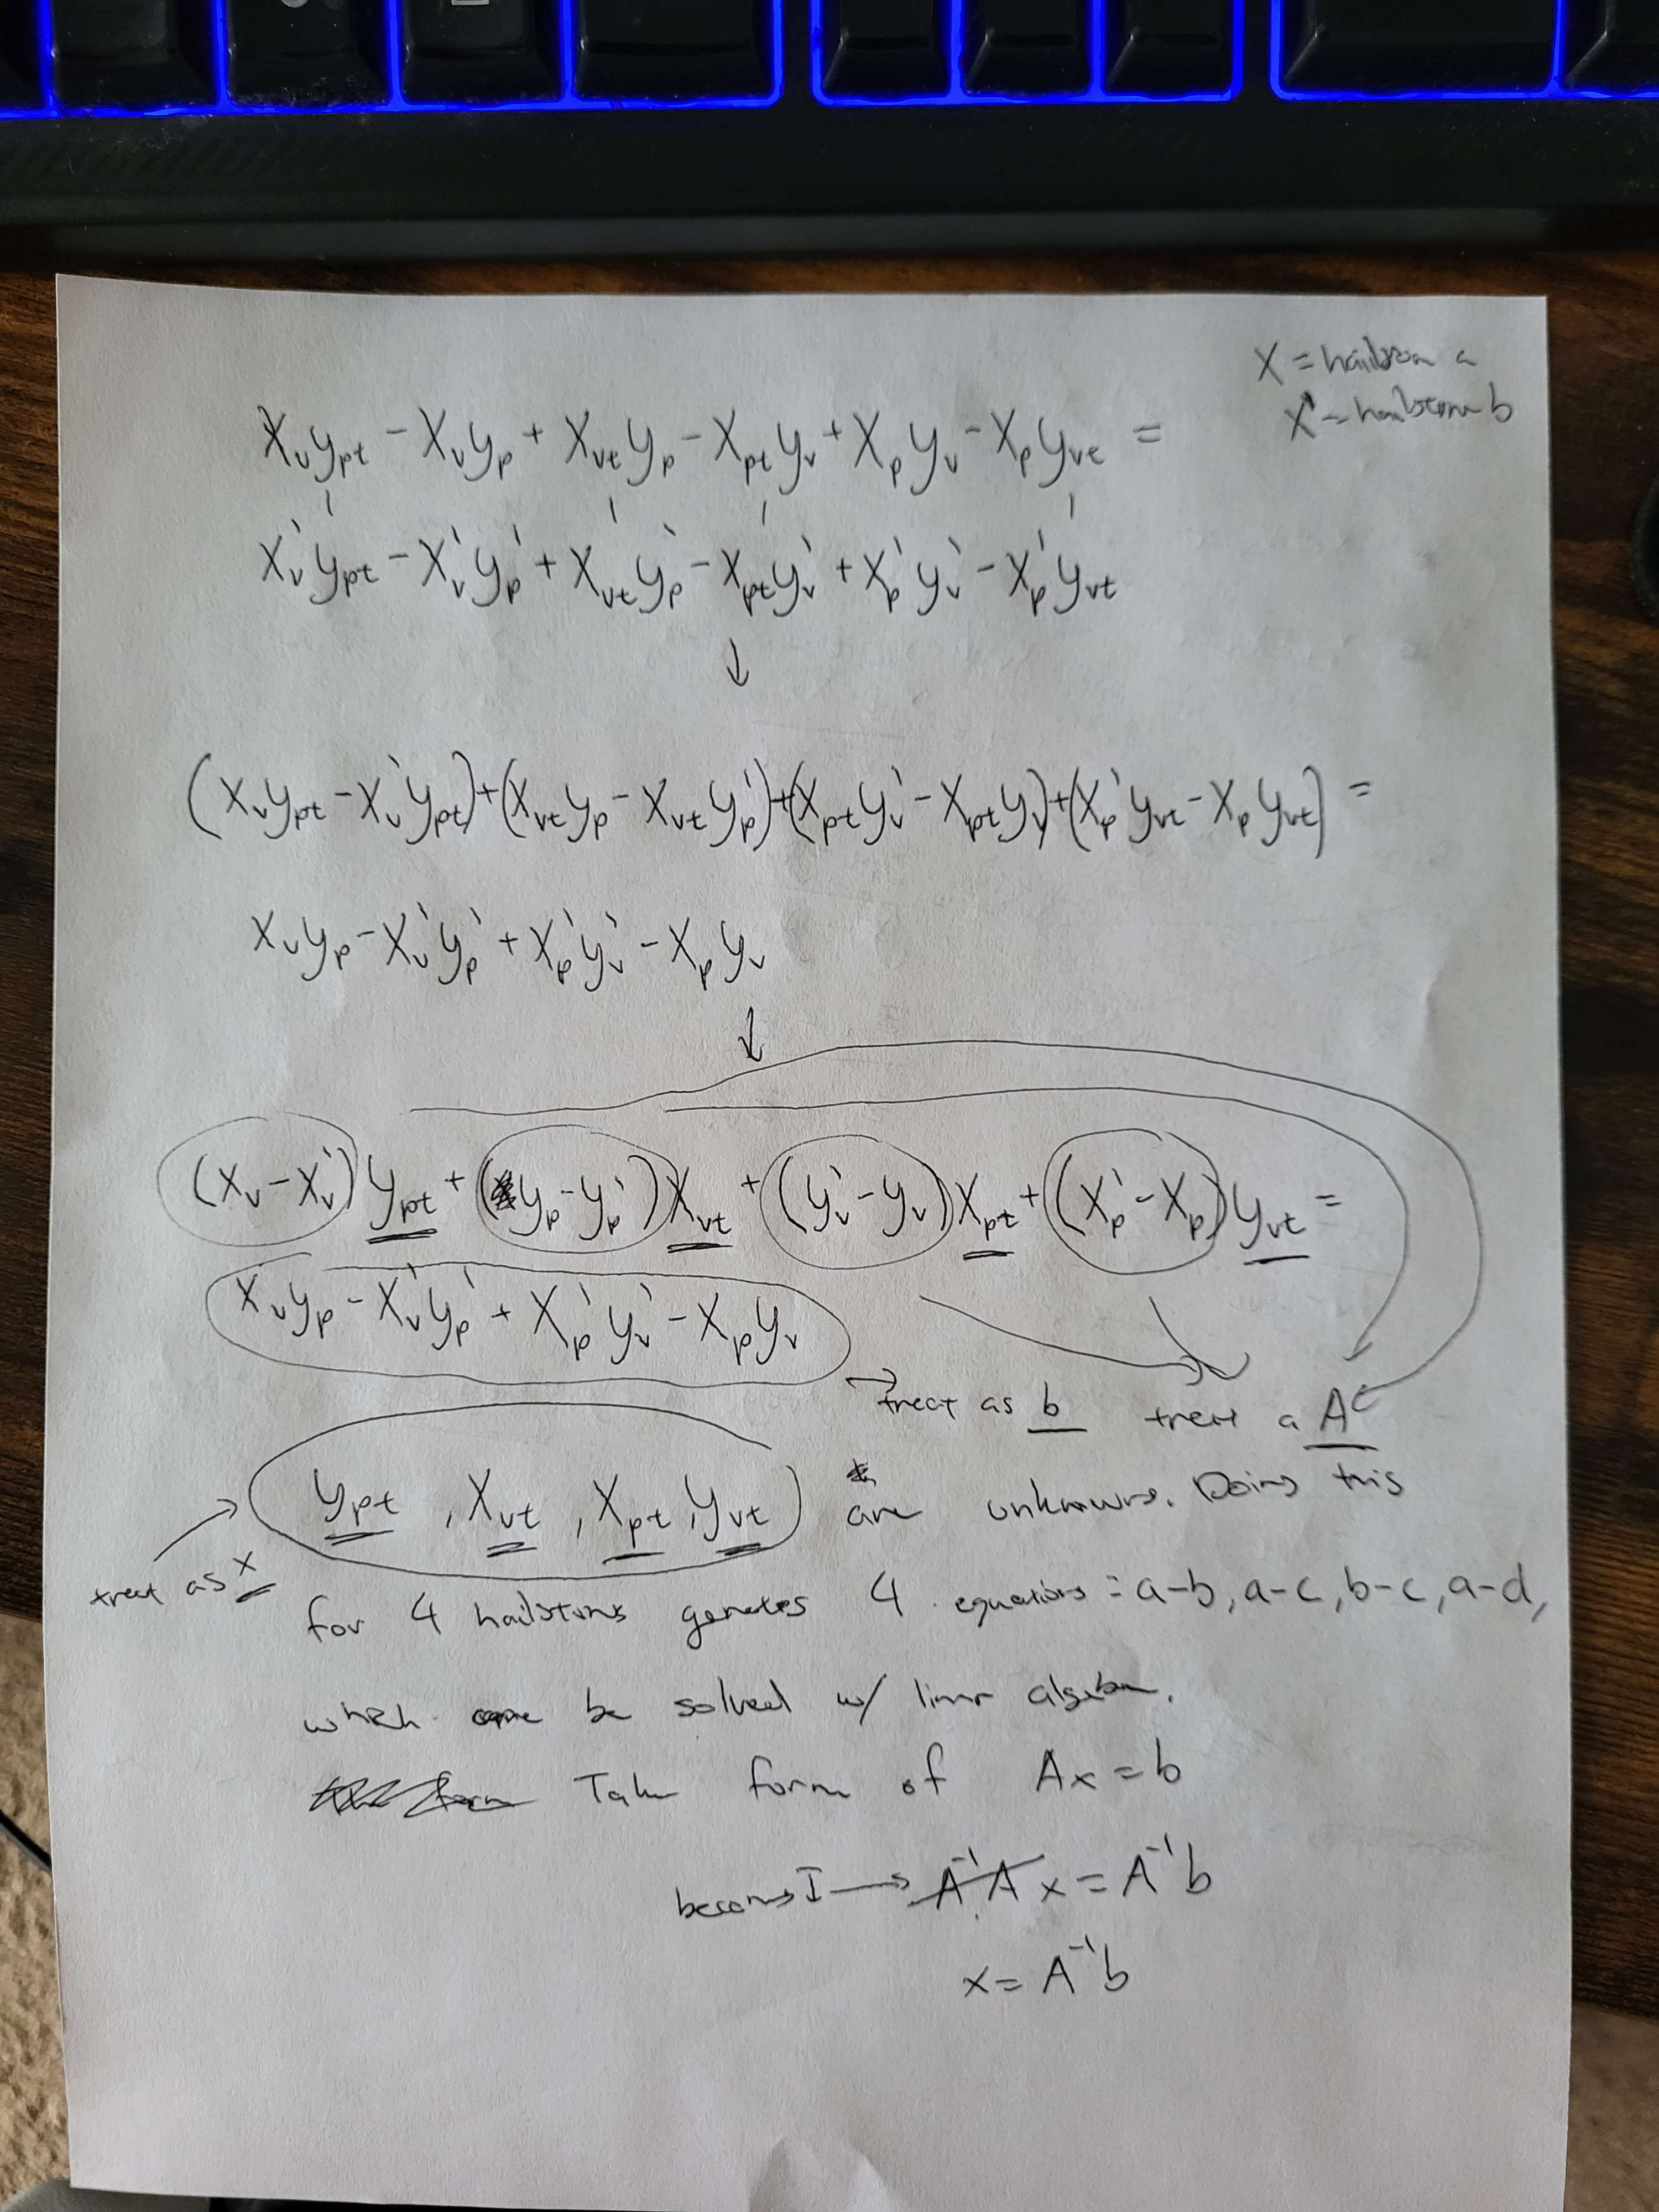 X = hailston a
X' = hailstone b
X_v y_pt - X_v y_p + X_vt y_p - X_pt y_v + X_p y_v - X_p y_vt =
X'_v y_pt - X'_v y'_p + X_vt y'_p - X_pt y'_v + X'_p y'_v - X'_p y_vt
↓
(X_v y_pt - X'_v y_pt) + (X_vt y_p - X_vt y'_p) + (X_pt y'_v - X_pt y_v) + (X'_p y_vt - X_p y_vt) =
X_v y_p - X'_v y'_p + X'_p y'_v - X_p y_v
↓
(X_v - X'_v) y_pt + (y_p - y'_p) X_vt + (y'_v - y_v) X_pt + (X'_p - X_p) y_vt =
X_v y_p - X'_v y'_p + X'_p y'_v - X_p y_v
→ treat as b treat a A
y_pt , X_vt , X_pt , y_vt are unknowns. Doing this
treat as x
for 4 hailstons genrates 4 equations: a-b, a-c, b-c, a-d,
which can be solved w/ linar algebra.
Take form of Ax = b
becoms I → A⁻¹A x = A⁻¹b
x = A⁻¹b